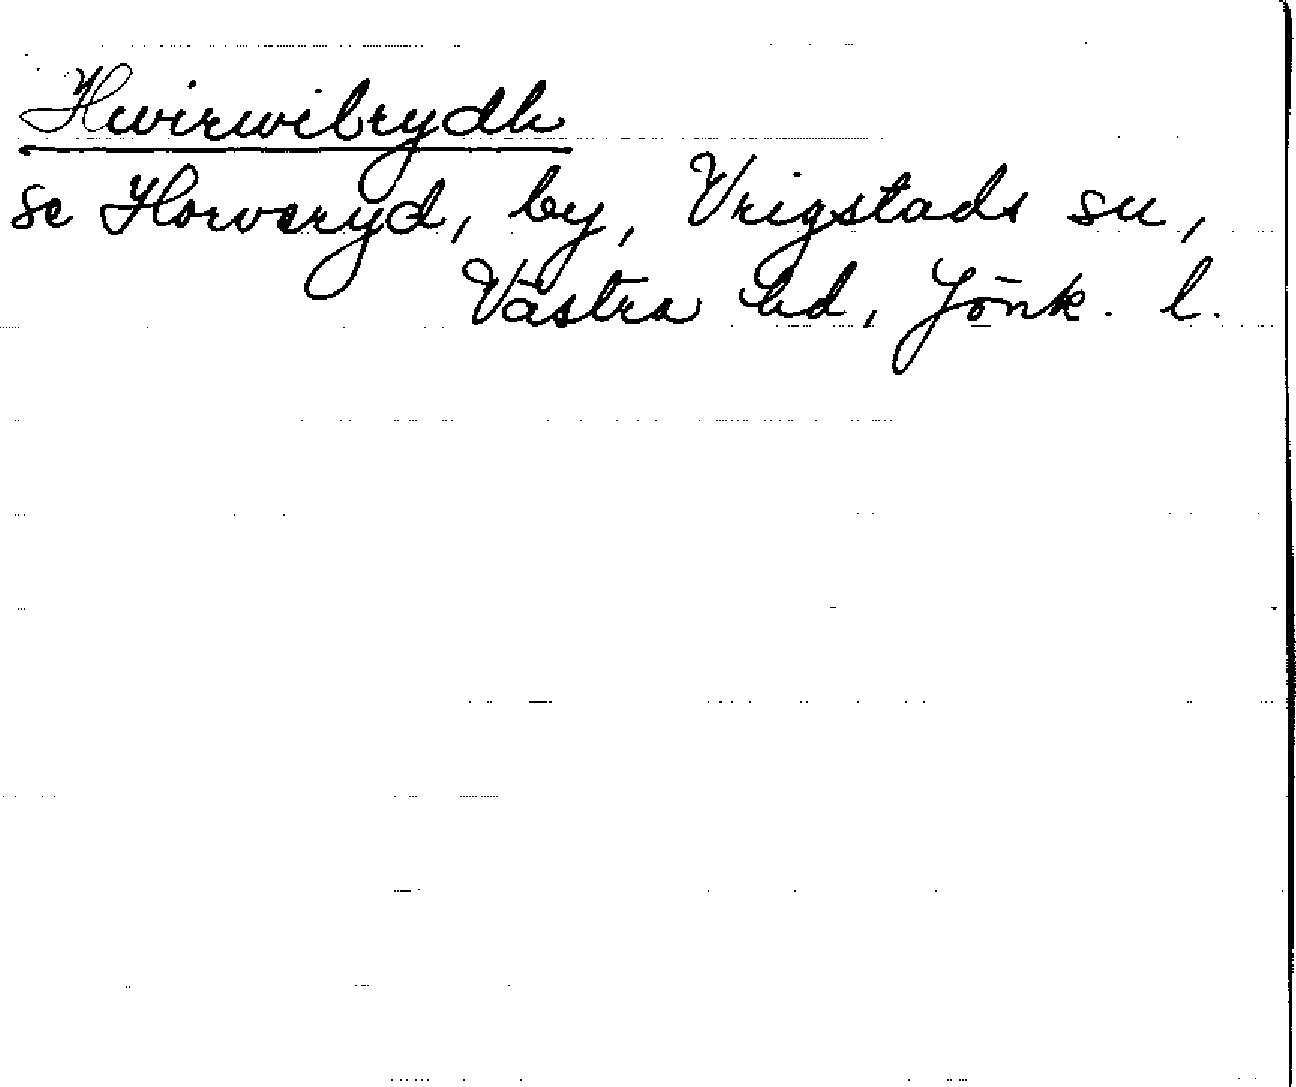 Hwirwibrydh
se Horveryd, by, Vrigstads sn,
Västra hd, Jönk. l.